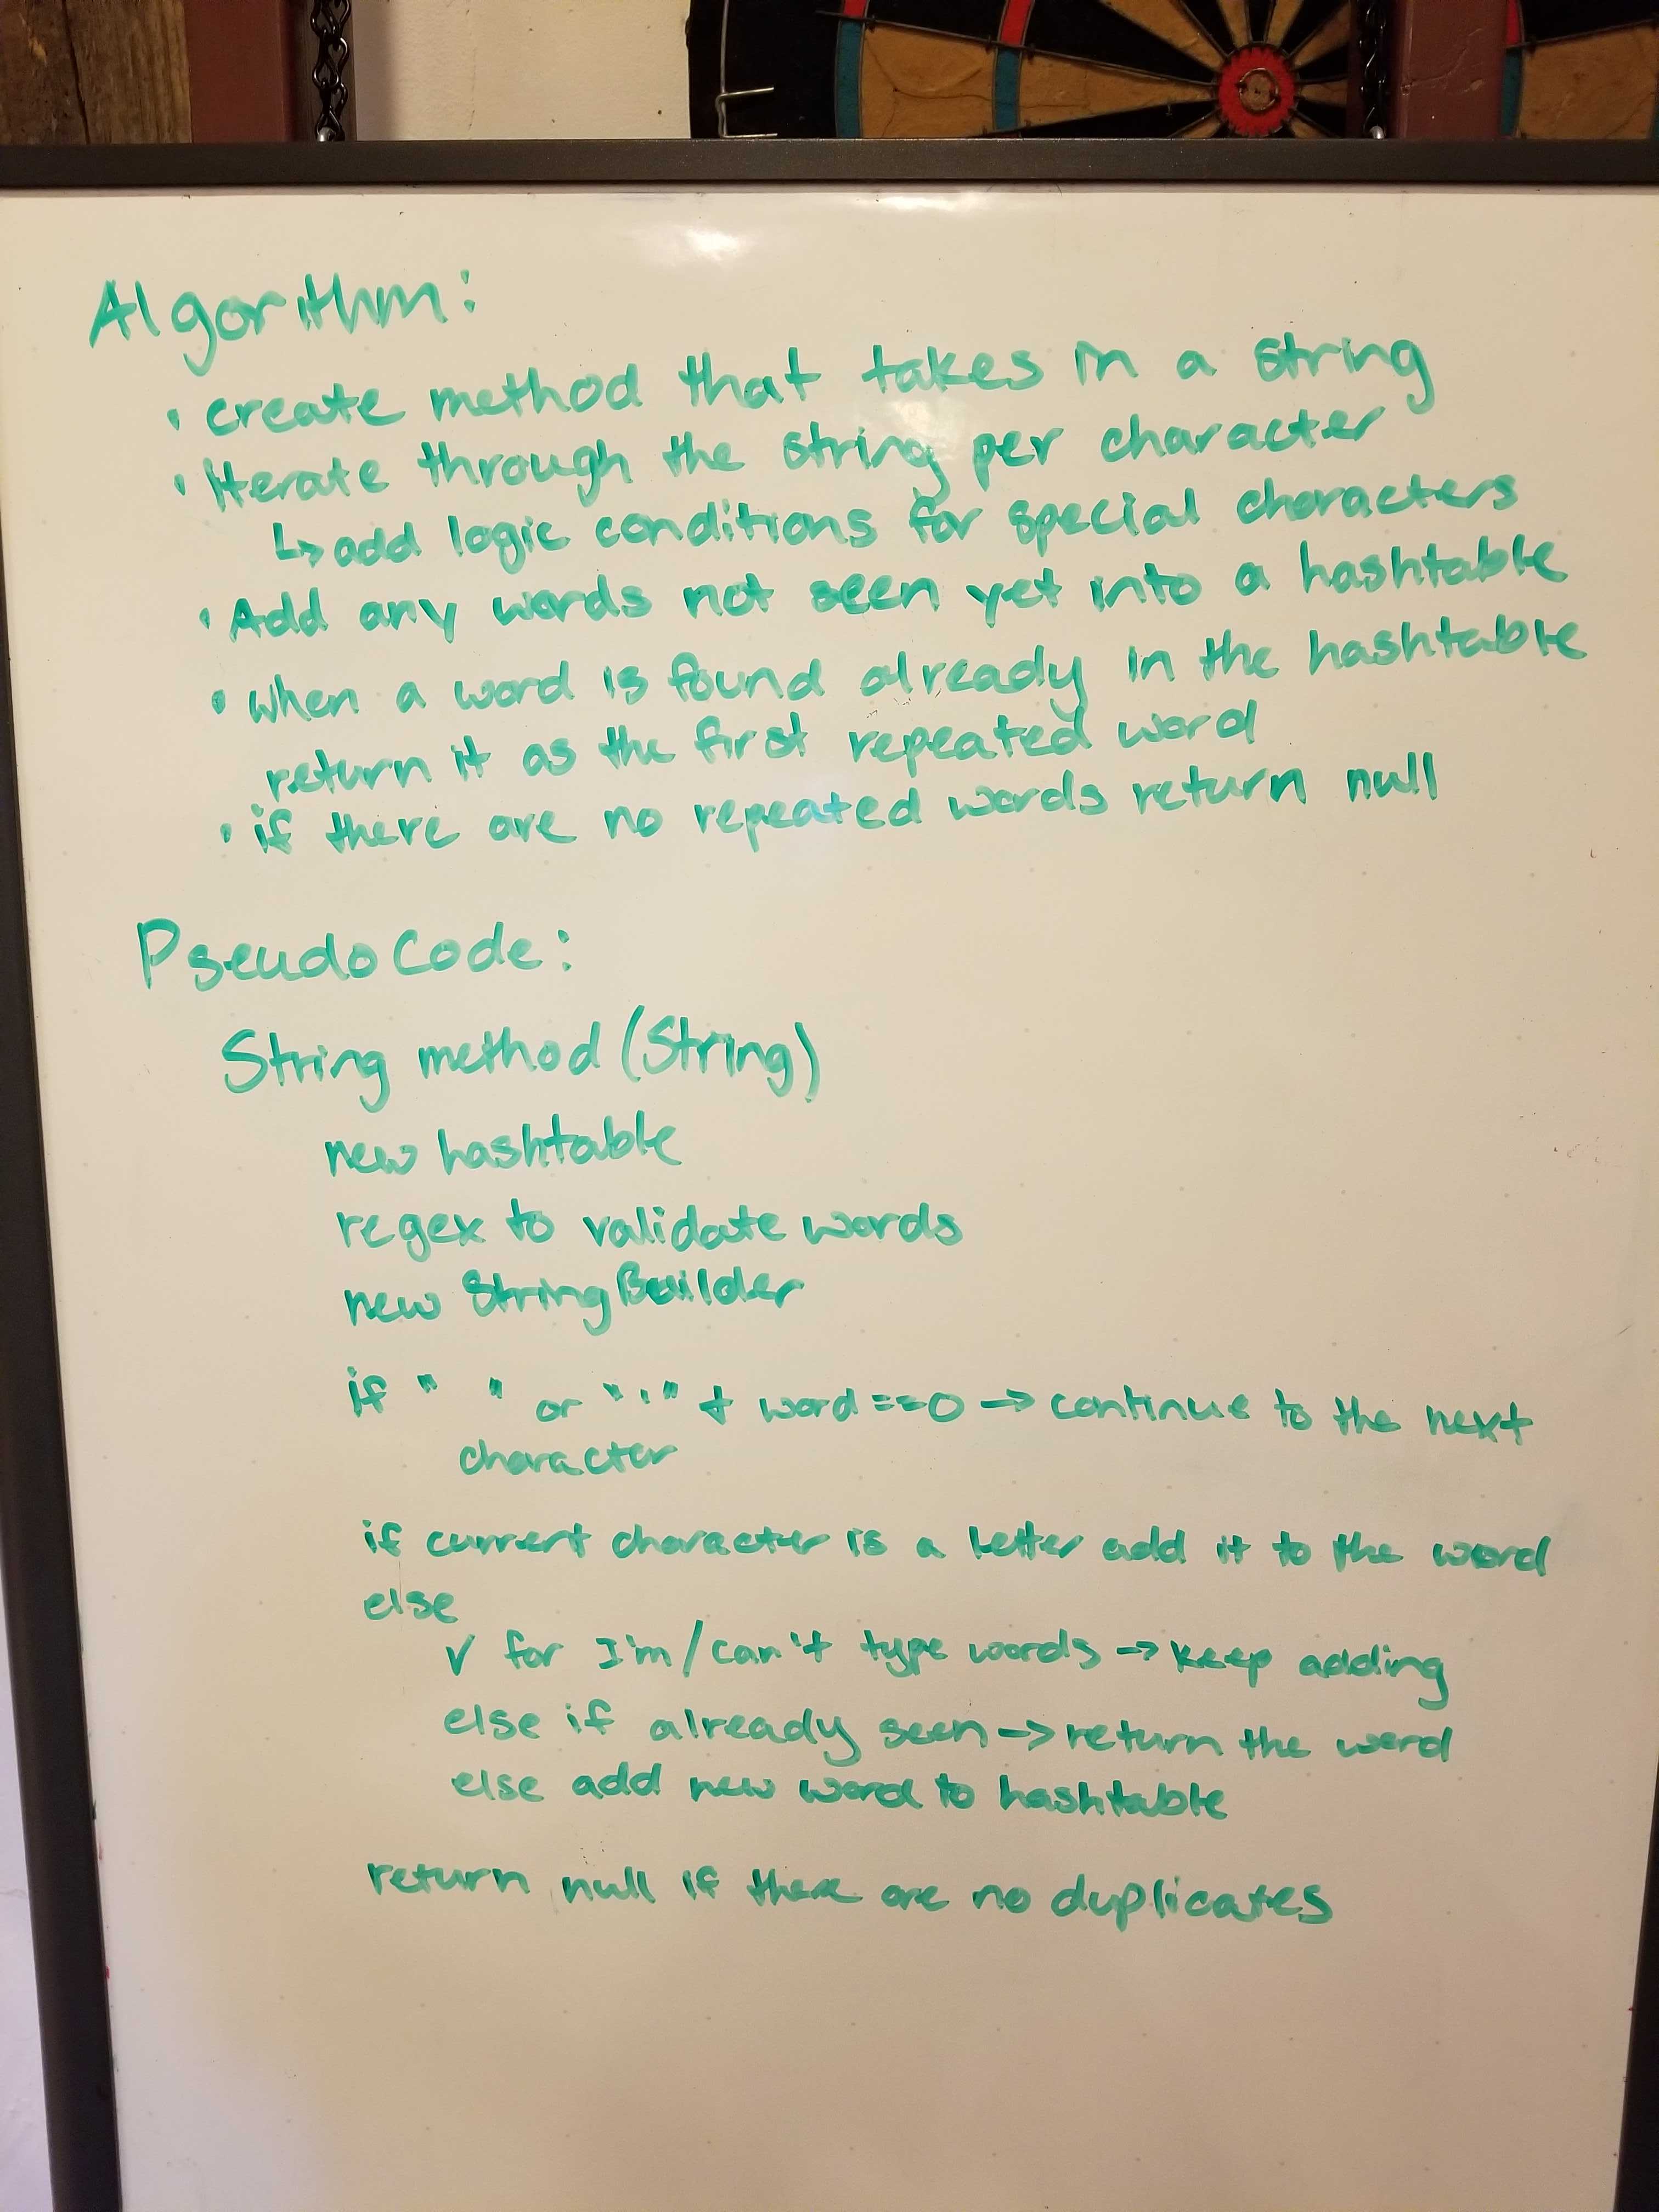 Algorithm:
• create method that takes in a string
• Iterate through the string per character
↳ add logic conditions for special characters
• Add any words not seen yet into a hashtable
• when a word is found already in the hashtable
return it as the first repeated word
• if there are no repeated words return null
PseudoCode:
String method (String)
new hashtable
regex to validate words
new StringBuilder
if " " or "'" + word==0 → continue to the next
character
if current character is a letter add it to the word
else
✓ for I'm/can't type words → keep adding
else if already seen → return the word
else add new word to hashtable
return null if there are no duplicates